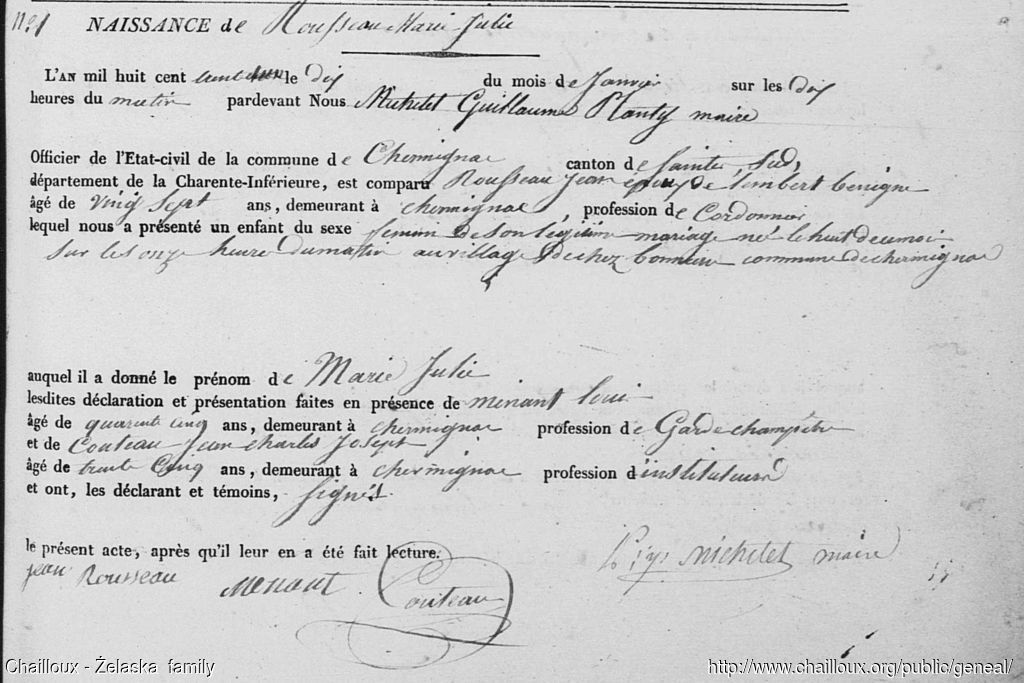 N.º 1 NAISSANCE de Rousseau Marie Julie
L'AN mil huit cent le dix du mois de Janvier sur les dix
heures du matin pardevant Nous Michelet Guillaume maire
Officier de l'Etat-civil de la commune de Chermignac canton de Saintes, Sud,
département de la Charente-Inférieure, est comparu Rousseau Jean époux de benigne
âgé de Vingt Sept ans, demeurant à chermignac, profession de Cordonnier
lequel nous a présenté un enfant du sexe féminin de son légitime mariage né le huit du moi
sur les onze heure du matin au village de chez bonneau commune de chermignac
auquel il a donné le prénom de Marie Julie
lesdites déclaration et présentation faites en présence de menant loui
âgé de quarente cinq ans, demeurant à chermignac profession de Garde champêtre
et de Couteau Jean Charles Joseph
âgé de trente Cinq ans, demeurant à chermignac profession d'instituteur
et ont, les déclarant et témoins, signés
le présent acte, après qu'il leur en a été fait lecture.
jean Rousseau menant Couteau michelet maire
Chailloux - Żelaska family http://www.chailloux.org/public/geneal/